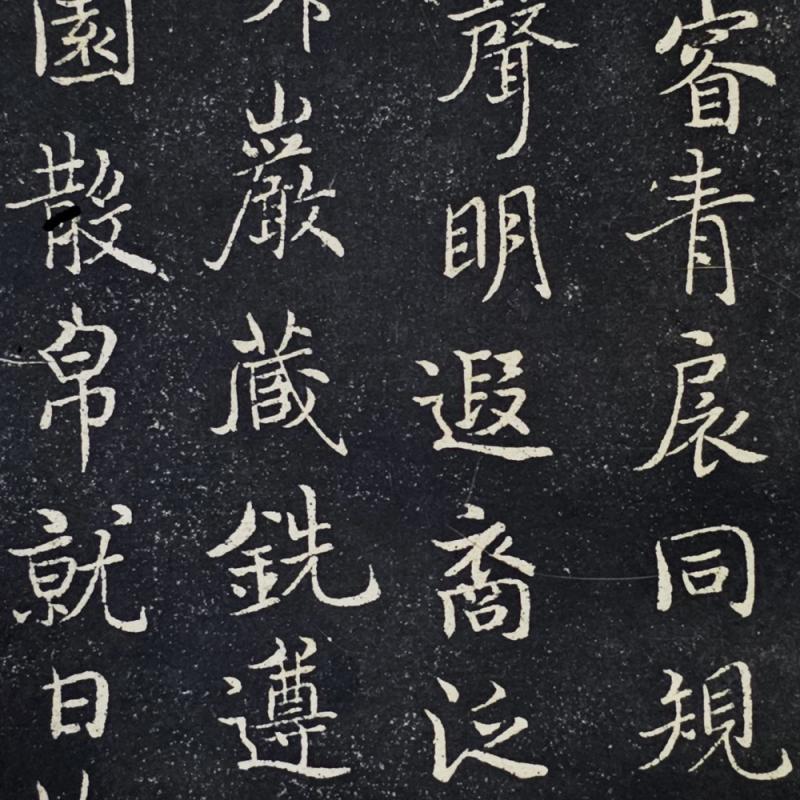 睿青扆同規
聲眀遐裔泛
巖蔵銑遵
園散帛就日